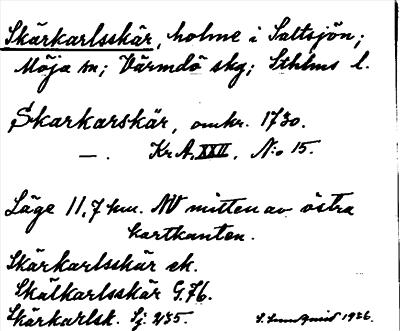 Skärkarlsskär, holme i Saltsjön;
Möja sn; Värmdö skg; Sthlms l.
Skarkarskär, omkr. 1730.
—. Kr.A. XXII. N:o 15.
Läge 11,7 km. NV mitten av östra
kartkanten.
Skärkarlsskär ek.
Skälkarlsskär G.76.
Skärkarlsk. Sj. 235.
1926.